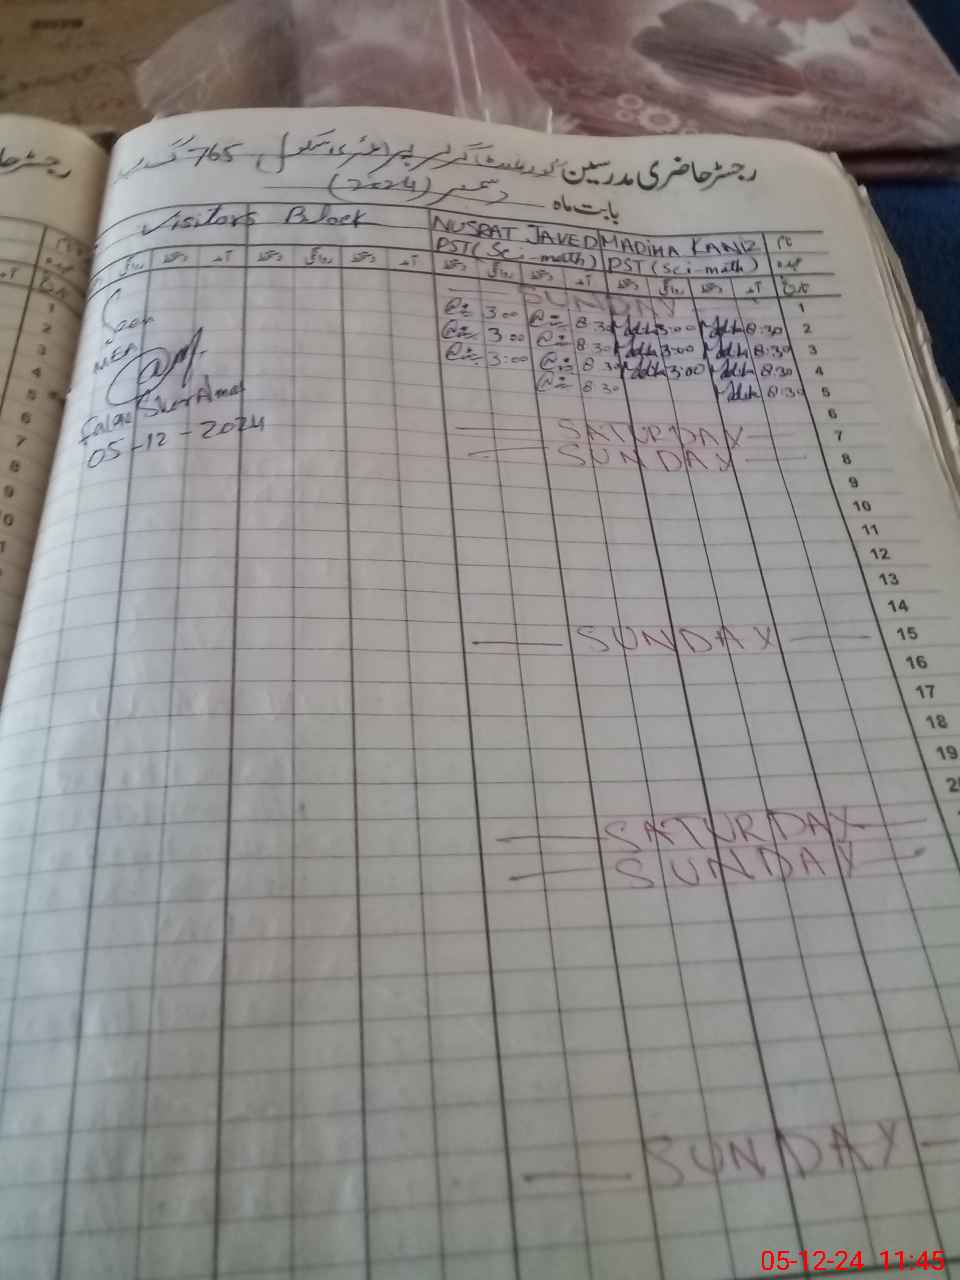 رجسٹر حاضری مدرسین گورنمنٹ گرلز پرائمری سکول 765 گ ب
بابت ماہ دسمبر (2024)
Visitors Block
NUSRAT JAVED MADIHA KANIZ
PST (Sci-math) PST (sci-math)
آمد دستخط روانگی دستخط آمد دستخط روانگی دستخط
1 SUNDAY
2 8:30 3:00 8:30 3:00
3 8:30 3:00 8:30 3:00
4 8:30 3:00 8:30 3:00
5 8:30 8:30
Seen
MEA
05-12-2024
6
7 SATURDAY
8 SUNDAY
9
10
11
12
13
14
15 SUNDAY
16
17
18
19
SATURDAY
SUNDAY
SUNDAY
رجسٹر حا
1
2
3
4
5
6
7
8
9
05-12-24 11:45